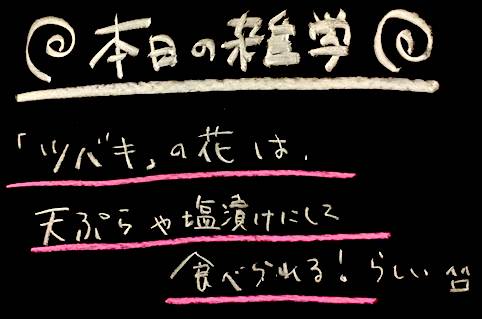 本日の雑学
「ツバキ」の花は、
天ぷらや塩漬けにして
食べられる！らしい